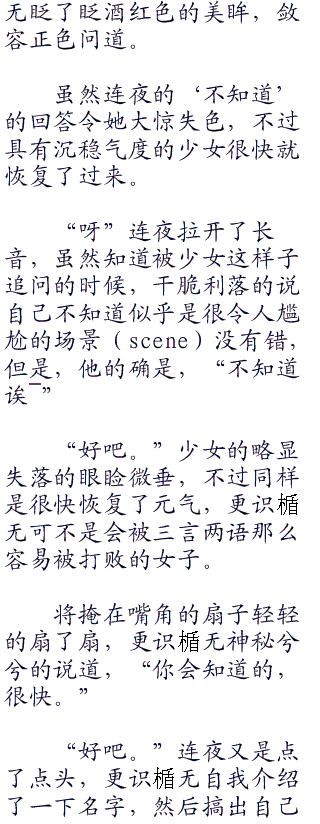 无眨了眨酒红色的美眸，敛
容正色问道。
虽然连夜的‘不知道’
的回答令她大惊失色，不过
具有沉稳气度的少女很快就
恢复了过来。
“呀”连夜拉开了长
音，虽然知道被少女这样子
追问的时候，干脆利落的说
自己不知道似乎是很令人尴
尬的场景（scene）没有错，
但是，他的确是，“不知道
诶¯”
“好吧。”少女的略显
失落的眼睑微垂，不过同样
是很快恢复了元气，更识楯
无可不是会被三言两语那么
容易被打败的女子。
将掩在嘴角的扇子轻轻
的扇了扇，更识楯无神秘兮
兮的说道，“你会知道的，
很快。”
“好吧。”连夜又是点
了点头，更识楯无自我介绍
了一下名字，然后搞出自己